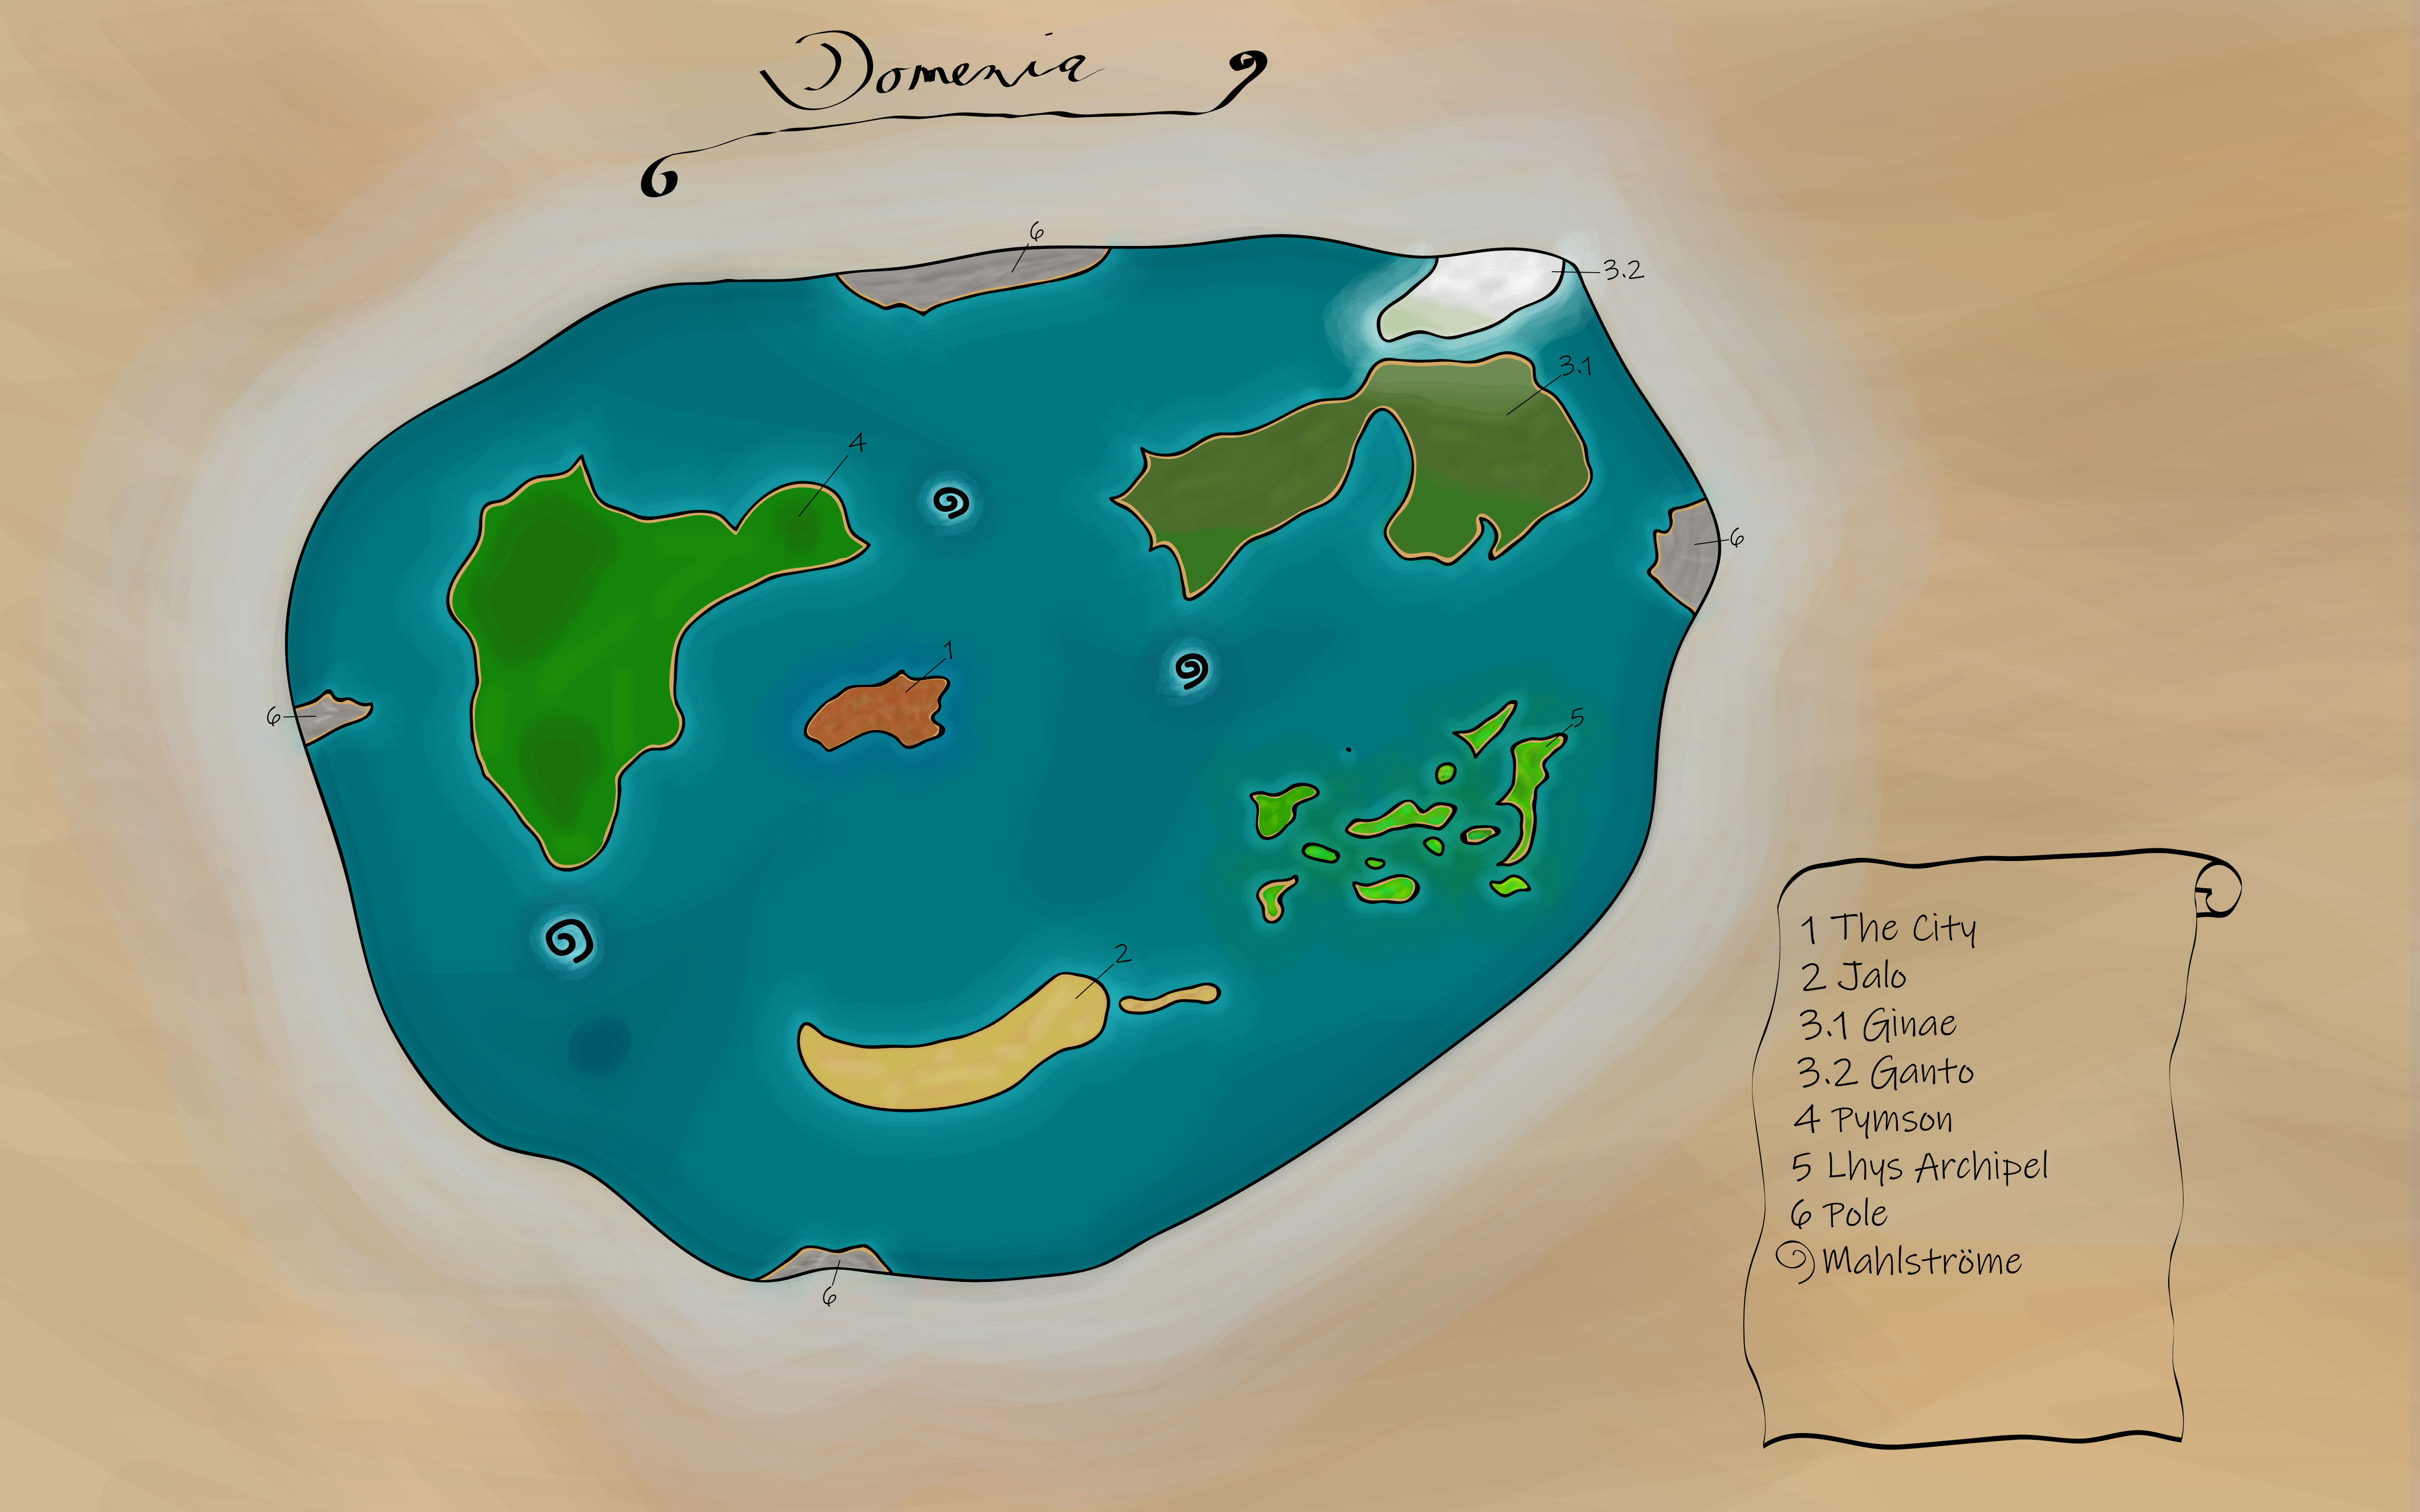 Domenia
6
3.2
3.1
4
6
1
6
5
2
6
1 The City
2 Jalo
3.1 Ginae
3.2 Ganto
4 Pymson
5 Lhys Archipel
6 Pole
Mahlströme